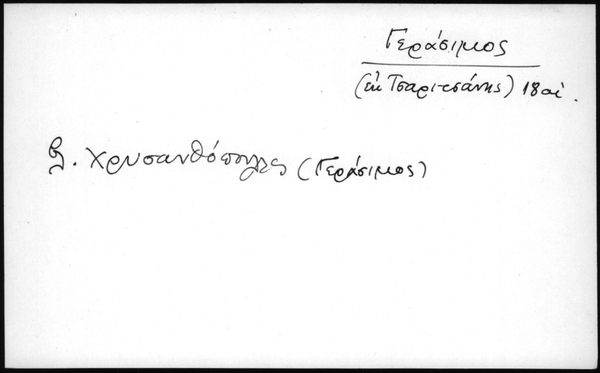 Γεράσιμος
(ἐκ Τσαριτσάνης) 18 αἰ.
βλ. Χρυσανθόπουλος (Γεράσιμος)